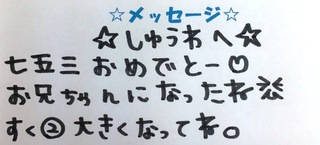 ☆メッセージ☆
☆しゅうわへ☆
七五三おめでとー♡
お兄ちゃんになったね
すく②大きくなってね。